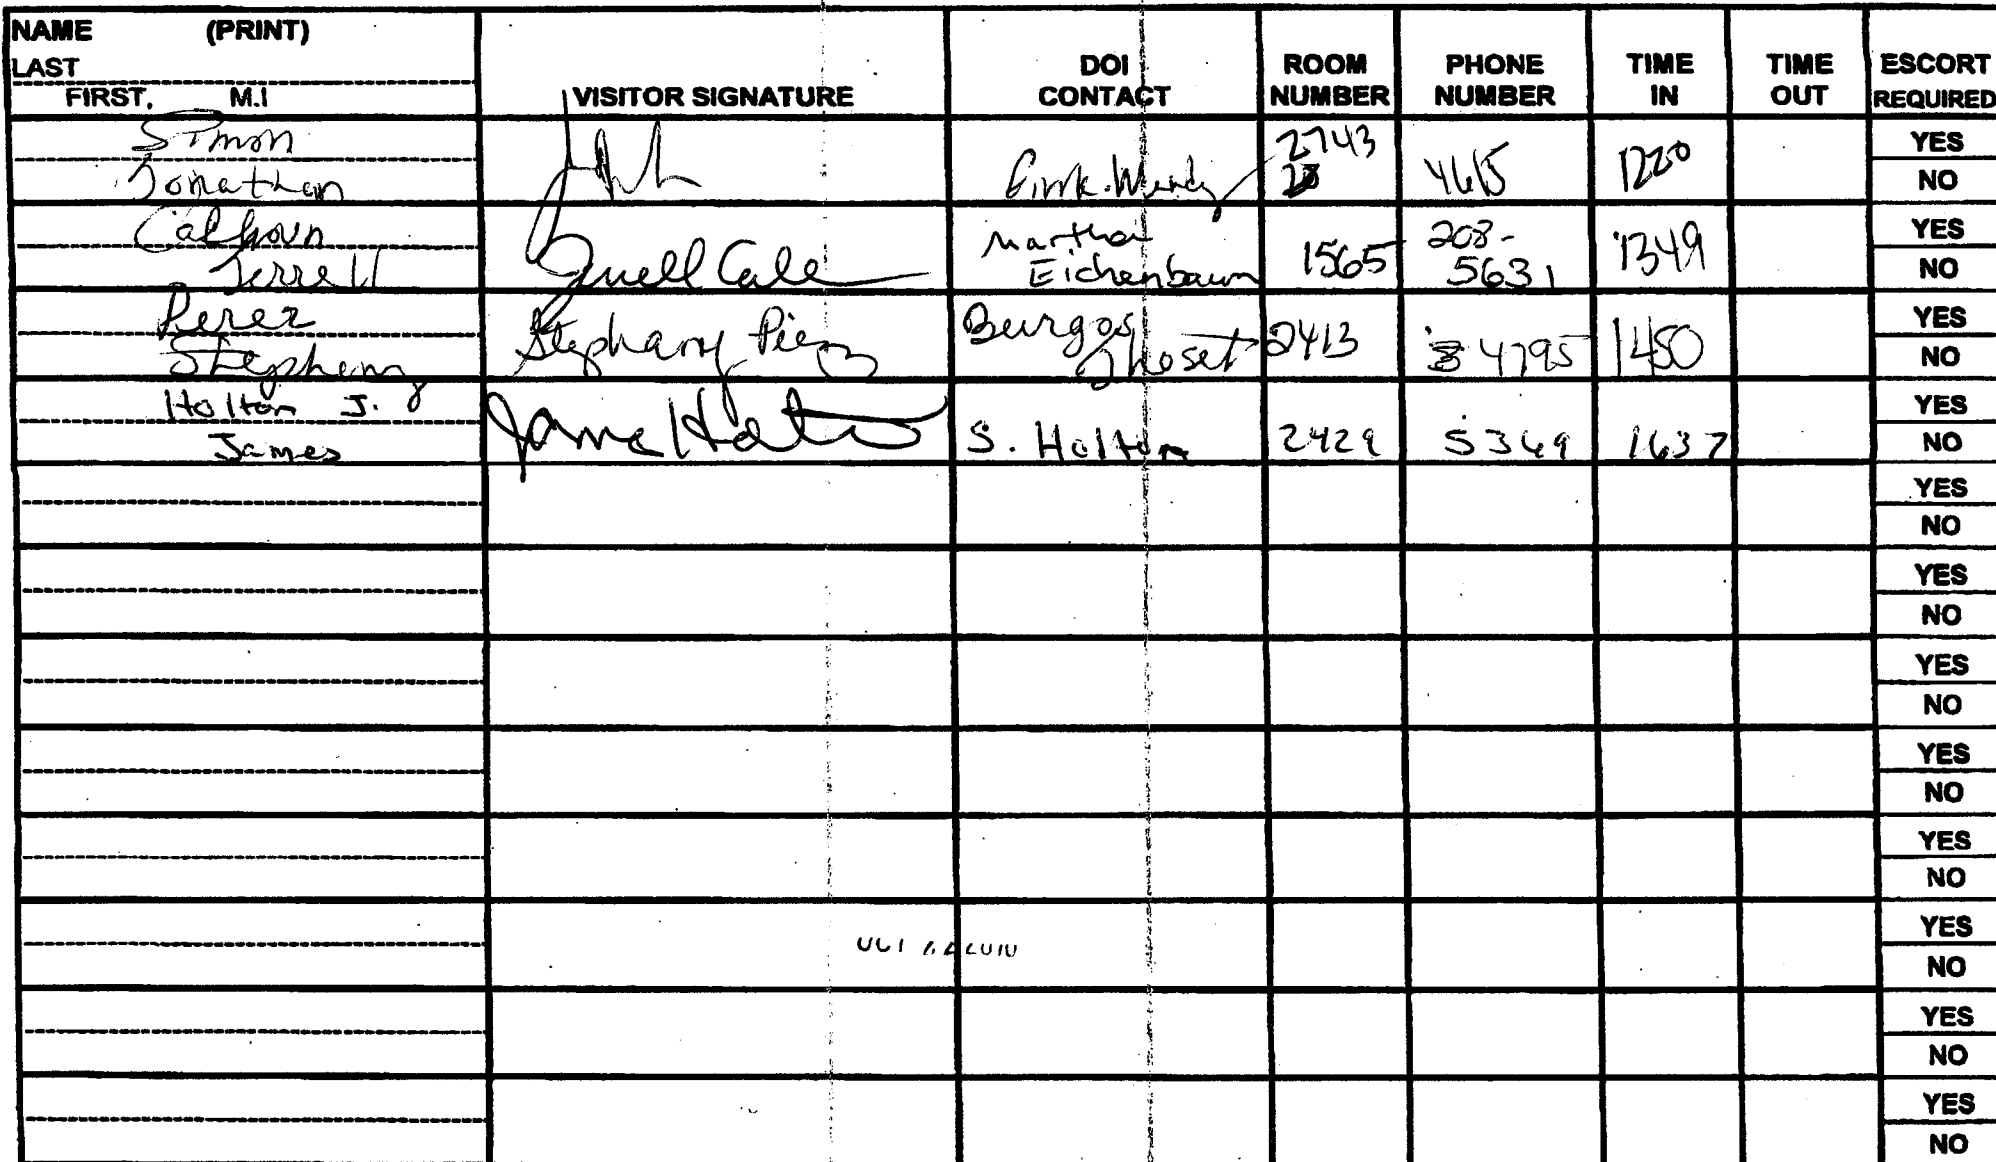 NAME (PRINT)
LAST
FIRST, M.I
VISITOR SIGNATURE
DOI CONTACT
ROOM NUMBER
PHONE NUMBER
TIME IN
TIME OUT
ESCORT REQUIRED
Simon
Jonathan
2743
4615
1220
YES
NO
Calhoun
Terrell
Martha
Eichenbaum
1565
208-
5631
1349
YES
NO
Perez
Stephany
Stephany Perez
Burgos
2413
4795
1450
YES
NO
Holton J.
James
James Holton
S. Holton
2429
5369
1637
YES
NO
YES
NO
YES
NO
YES
NO
YES
NO
YES
NO
YES
NO
YES
NO
YES
NO